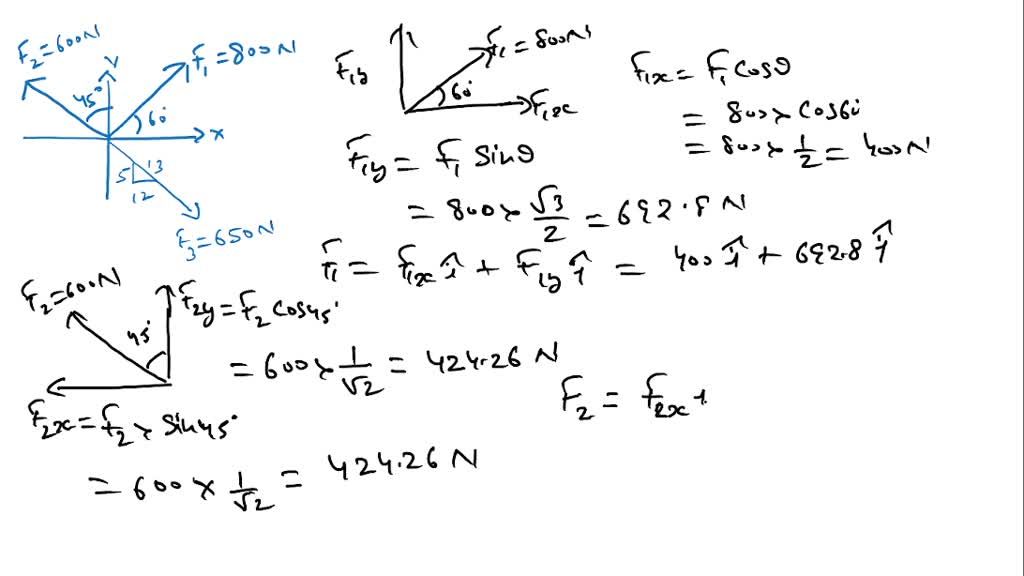 F₂=600N
F₁=800N
45°
y
60°
x
5
13
12
F₃=650N
F₁y
F₁=800N
60°
F₁x
F₁x = F₁ cosθ
= 800 × cos60°
= 800 × 1/2 = 400 N
F₁y = F₁ sinθ
= 800 × √3/2 = 692.8 N
F₁ = F₁x î + F₁y ĵ = 400 î + 692.8 ĵ
F₂=600N
45°
F₂y = F₂ cos45°
= 600 × 1/√2 = 424.26 N
F₂x = F₂ × sin45°
= 600 × 1/√2 = 424.26 N
F₂ = F₂x